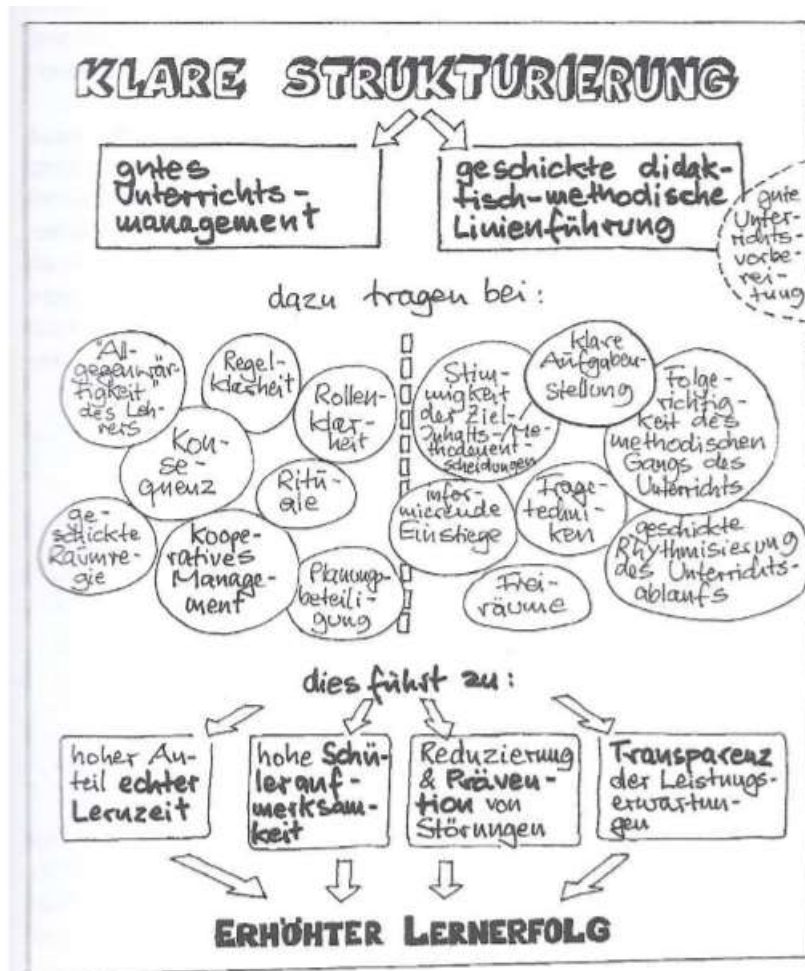 KLARE STRUKTURIERUNG
gutes
Unterrichts-
management
geschickte didak-
tisch-methodische
Linienführung
gute
Unter-
richts-
vorbe-
rei-
tung
dazu tragen bei:
"All-
gegenwär-
tigkeit"
des Leh-
rers
Regel-
klarheit
Rollen-
klarheit
Kon-
se-
quenz
Ritu-
ale
ge-
schickte
Raumre-
gie
Koope-
ratives
Manage-
ment
Planungs-
beteili-
gung
Stim-
migkeit
der Ziel-/
Inhalts-/Me-
thodenent-
scheidungen
klare
Aufgaben-
stellung
Folge-
richtig-
keit des
methodischen
Gangs des
Unterrichts
infor-
mierende
Einstiege
Frage-
techni-
ken
geschickte
Rhythmisierung
des Unterrichts-
ablaufs
Frei-
räume
dies führt zu:
hoher An-
teil echter
Lernzeit
hohe Schü-
lerauf-
merksam-
keit
Reduzierung
& Präven-
tion von
Störungen
Transparenz
der Leistungs-
erwartun-
gen
ERHÖHTER LERNERFOLG